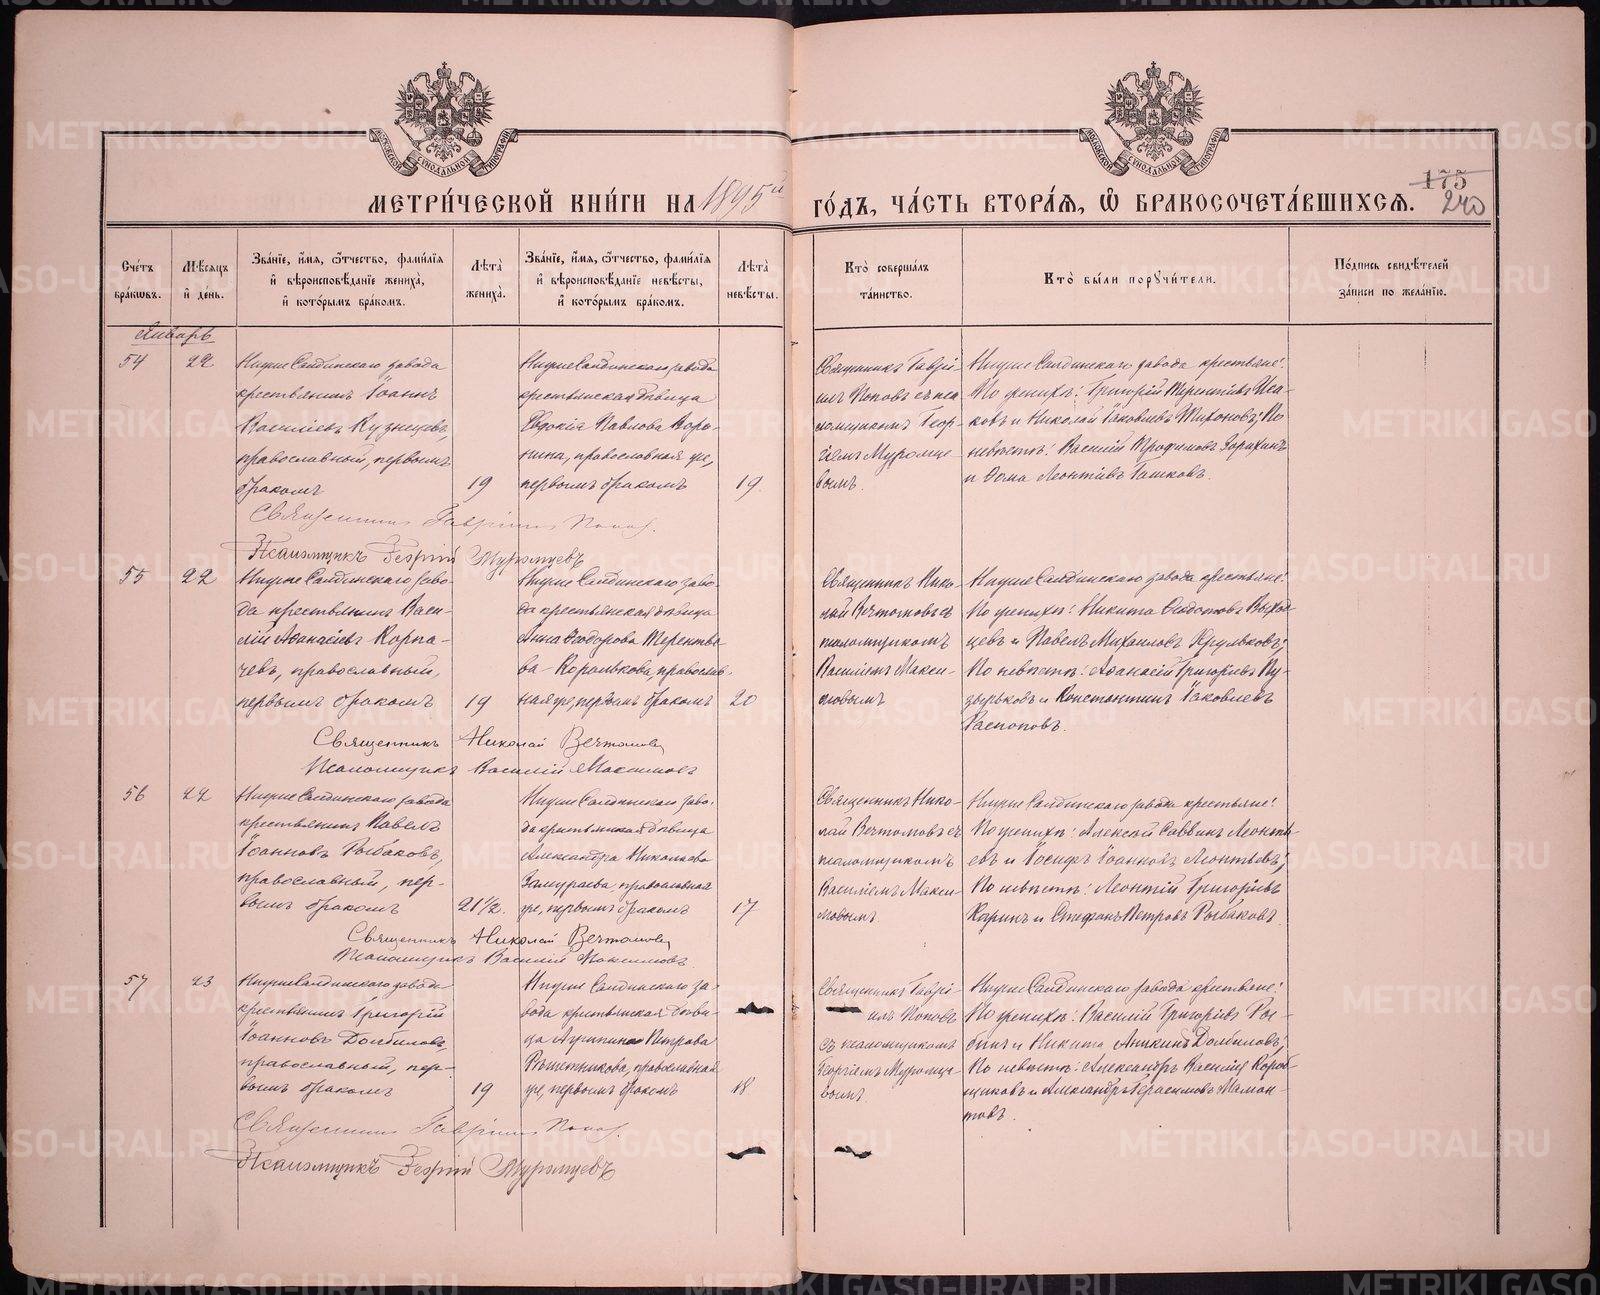 МОСКОВСКОЙ СУНОДАЛЬНОЙ ТИПОГРАФІИ
МОСКОВСКОЙ СУНОДАЛЬНОЙ ТИПОГРАФІИ
МЕТРИ́ЧЕСКОЙ КНИ́ГИ НА 1895й ГО́ДЪ, ЧА́СТЬ ВТОРА́Я, Ѡ БРАКОСОЧЕТА́ВШИХСЯ.
175
240
Сче́тъ бра́кѡвъ.
Мѣ́сяцъ и де́нь.
Зва́ніе, и́мя, ѻ́тчество, фами́лія и вѣроисповѣ́даніе жениха̀, и кото́рымъ бра́комъ.
Лѣ́та жениха̀.
Зва́ніе, и́мя, ѻ́тчество, фами́лія и вѣроисповѣ́даніе невѣ́сты, и кото́рымъ бра́комъ.
Лѣ́та невѣ́сты.
Кто̀ соверша́лъ та́инство.
Кто̀ бы́ли порꙋчи́тели.
По́дпись свидѣ́телей за́писи по жела́нію.
Январь
54
22
Нижне Салдинскаго завода
крестьянинъ Іоаннъ
Василіевъ Кузнецовъ,
православный, первымъ
бракомъ
19
Нижне Салдинскаго завода
крестьянская дѣвица
Евдокія Павлова Воро-
нина, православная же,
первымъ бракомъ
19.
Священникъ Гаврі-
илъ Поповъ съ пса
ломщикомъ Геор-
гіемъ Муромце-
вымъ.
Нижне Салдинскаго завода крестьяне:
По женихѣ: Григорій Терентіевъ Иса-
ковъ и Николай Іаковлевъ Тихоновъ; По
невѣстѣ: Василій Трофимовъ
и Ѳома Леонтіевъ
Священникъ Гавріилъ Поповъ.
Псаломщикъ Георгій Муромцевъ
55
22
Нижне Салдинскаго заво-
да крестьянинъ Васи-
лій Аѳанасіевъ Корпа-
чевъ, православный,
первымъ бракомъ
19
Нижне Салдинскаго заво-
да крестьянская дѣвица
Анна Ѳеодорова Терентье
ва-Королькова, православ-
ная же, первымъ бракомъ
20
Священникъ Нико-
лай Вечтомовъ съ
псаломщикомъ
Василіемъ Макси-
мовымъ
Нижне Салдинскаго завода крестьяне:
По женихѣ: Никита Ѳедотовъ Выход
цевъ и Павелъ Михаиловъ
По невѣстѣ: Аѳанасій Григорьевъ Пу-
зырьковъ и Константинъ Іаковлевъ
Распоповъ.
Священникъ Николай Вечтомовъ
Псаломщикъ Василій Максимовъ
56
22
Нижне Салдинскаго завода
крестьянинъ Павелъ
Іоанновъ Рыбаковъ,
православный, пер-
вымъ бракомъ
21 1/2.
Нижне Салдинскаго заво-
да крестьянская дѣвица
Александра Николаева
Замураева, православная
же, первымъ бракомъ
17
Священникъ Нико-
лай Вечтомовъ съ
псаломщикомъ
Василіемъ Макси-
мовымъ.
Нижне Салдинскаго завода крестьяне:
По женихѣ: Алексѣй Саввинъ Леонть
евъ и Іосифъ Іоанновъ Леонтьевъ;
По невѣстѣ: Леонтій Григорьевъ
и Стефанъ Петровъ Рыбаковъ.
Священникъ Николай Вечтомовъ
Псаломщикъ Василій Максимовъ.
57
23
Нижне Салдинскаго завода
крестьянинъ Григорій
Іоанновъ Долбиловъ,
православный, пер-
вымъ бракомъ
19
Нижне Салдинскаго за-
вода крестьянская дѣви-
ца Агрипина Петрова
Рѣшетникова, православная
же, первымъ бракомъ
18
Священникъ Гаврі-
илъ Поповъ
съ псаломщикомъ
Георгіемъ Муромце-
вымъ.
Нижне Салдинскаго завода крестьяне:
По женихѣ: Василій Григорьевъ
и Никита Аникинъ Долбиловъ;
По невѣстѣ: Александръ Василіевъ Короб
щиковъ и Александръ Герасимовъ Мамон-
товъ.
Священникъ Гавріилъ Поповъ.
Псаломщикъ Георгій Муромцевъ
METRIKI.GASO-URAL.RU